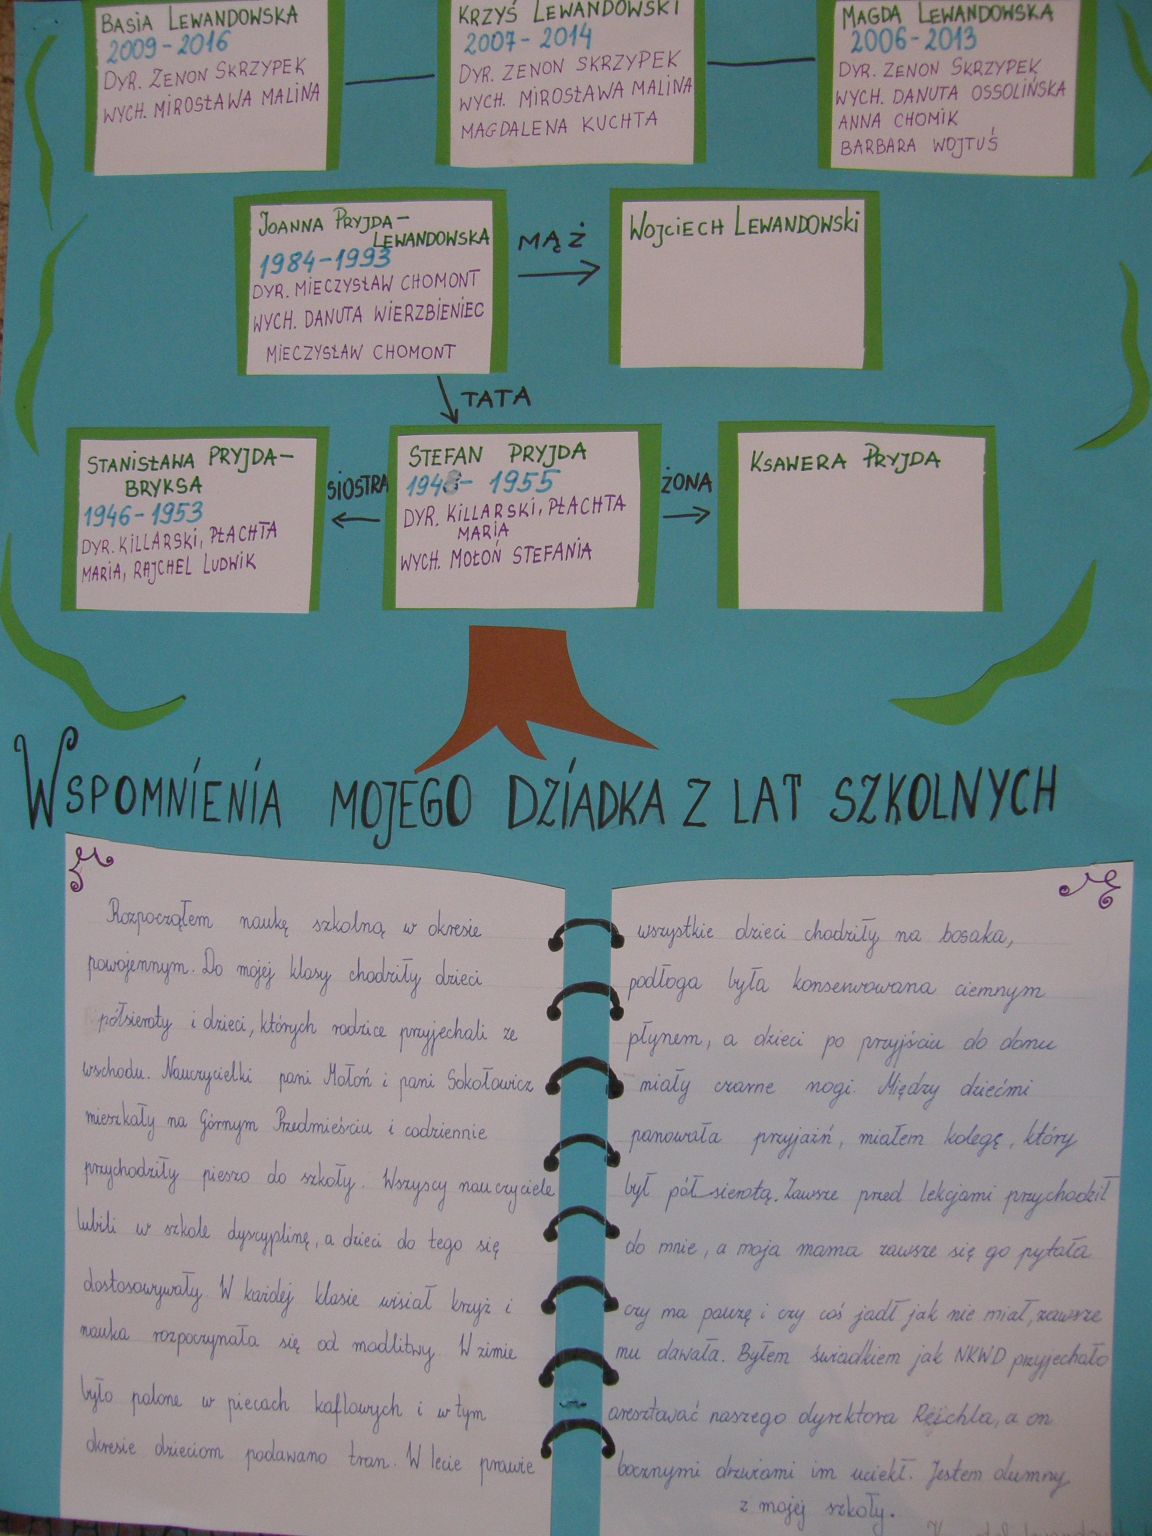 BASIA LEWANDOWSKA
2009-2016
DYR. ZENON SKRZYPEK
WYCH. MIROSŁAWA MALINA
KRZYŚ LEWANDOWSKI
2007-2014
DYR. ZENON SKRZYPEK
WYCH. MIROSŁAWA MALINA
MAGDALENA KUCHTA
MAGDA LEWANDOWSKA
2006-2013
DYR. ZENON SKRZYPEK
WYCH. DANUTA OSSOLIŃSKA
ANNA CHOMIK
BARBARA WOJTUŚ
JOANNA PRYJDA-
LEWANDOWSKA
1984-1993
DYR. MIECZYSŁAW CHOMONT
WYCH. DANUTA WIERZBIENIEC
MIECZYSŁAW CHOMONT
MĄŻ
WOJCIECH LEWANDOWSKI
TATA
STANISŁAWA PRYJDA-
BRYKSA
1946-1953
DYR. KILLARSKI, PŁACHTA
MARIA, RAJCHEL LUDWIK
SIOSTRA
STEFAN PRYJDA
1948-1955
DYR. KILLARSKI, PŁACHTA
MARIA
WYCH. MOŁOŃ STEFANIA
ŻONA
KSAWERA PRYJDA
WSPOMNIENIA MOJEGO DZIADKA Z LAT SZKOLNYCH
Rozpocząłem naukę szkolną w okresie
powojennym. Do mojej klasy chodziły dzieci
półsieroty i dzieci, których rodzice przyjechali ze
wschodu. Nauczycielki pani Mołoń i pani Sokołowicz
mieszkały na Górnym Przedmieściu i codziennie
przychodziły pieszo do szkoły. Wszyscy nauczyciele
lubili w szkole dyscyplinę, a dzieci do tego się
dostosowywały. W każdej klasie wisiał krzyż i
nauka rozpoczynała się od modlitwy. W zimie
było palone w piecach kaflowych i w tym
okresie dzieciom podawano tran. W lecie prawie
wszystkie dzieci chodziły na bosaka,
podłoga była konserwowana ciemnym
płynem, a dzieci po przyjściu do domu
miały czarne nogi. Między dziećmi
panowała przyjaźń, miałem kolegę, który
był półsierotą. Zawsze przed lekcjami przychodził
do mnie, a moja mama zawsze się go pytała
czy ma pauzę i czy coś jadł jak nie miał, zawsze
mu dawała. Byłem świadkiem jak NKWD przyjechało
aresztować naszego dyrektora Rejchla, a on
bocznymi drzwiami im uciekł. Jestem dumny
z mojej szkoły.